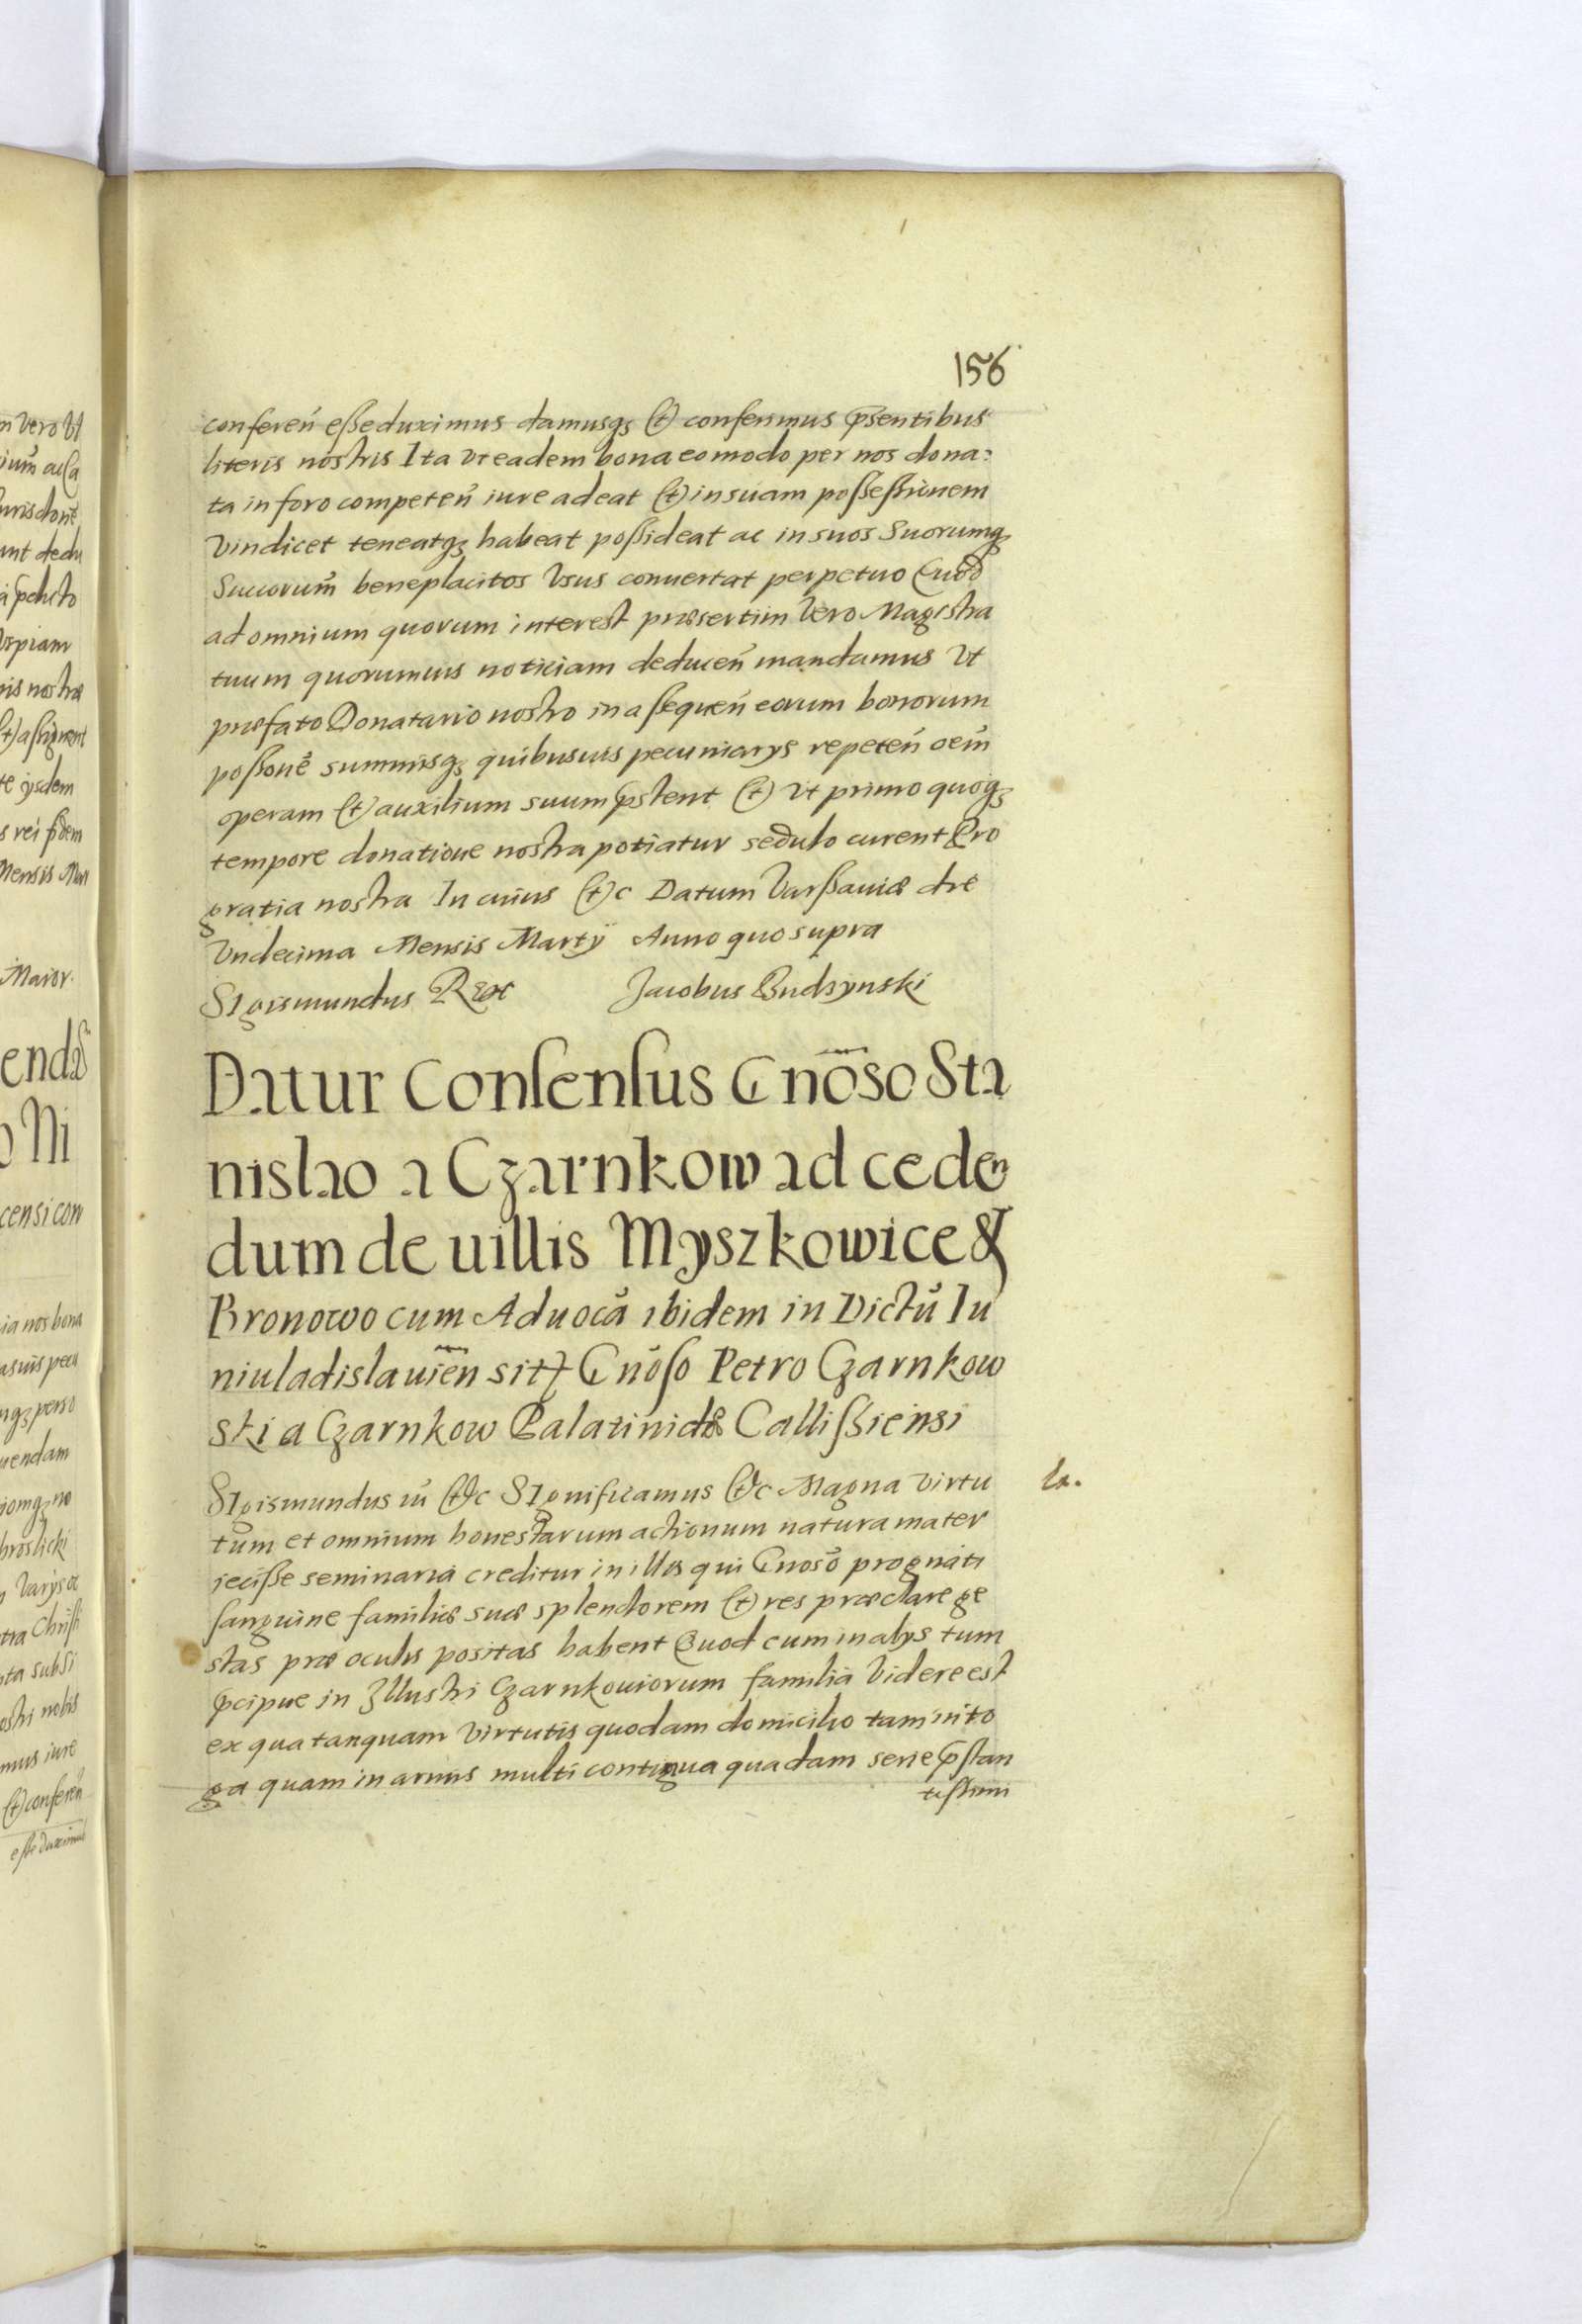 156
conferen̄ eſse duximus damusqȝ et conferimus p̄sentibus
literis nostris Ita vt eadem bona eo modo per nos dona:
ta in foro competen̄ iure adeat et in suam poſseſsionem
vindicet teneatqȝ habeat poſsideat ac in suos Suorumqȝ
Succorum̄ beneplacitos Vsus conuertat perpetuo Quod
ad omnium quorum interest præsertim Vero Magistra
tuum quorumuis noticiam deducen̄ mandamus Vt
præfato Donatario nostro in aſsequen̄ eorum bonorum
poſsonē summisqȝ quibusuis pecuniarys repeten̄ oem̄
operam et auxilium suum p̄stent et vt primo quoqȝ
tempore donatione nostra potiatur sedulo curent Pro
gratia nostra In cuius etc Datum Varſsauiæ die
Vndecima Mensis Martÿ Anno quo supra
Sigismundus Rex Jacobus Budzynski
Datur Conſenſus Gnōso Sta
nislao a Czarnkow ad ceden
dum de uillis Myszkowice &
Bronowo cum Aduocā ibidem in Dictū Iu
niuladislauien̄ sitꝭ Gnōſo Petro Czarnkow
ski a Czarnkow Palatinidæ Calliſsiensi
Sigismundus etc Significamus etc Magna virtu
tum et omnium honestarum actionum natura mater
ieciſse seminaria creditur in illos qui Gnosō prognati
ſanguine familiæ suæ splendorem et res præclare ge
stas præ oculis positas habent Quod cum in alys tum
p̄cipue in Illustri Czarnkouiorum familia Videre est
ex qua tanquam virtutis quodam domicilio tam in to
ga quam in armis multi contigua quadam serie p̄stan
tiſsimi